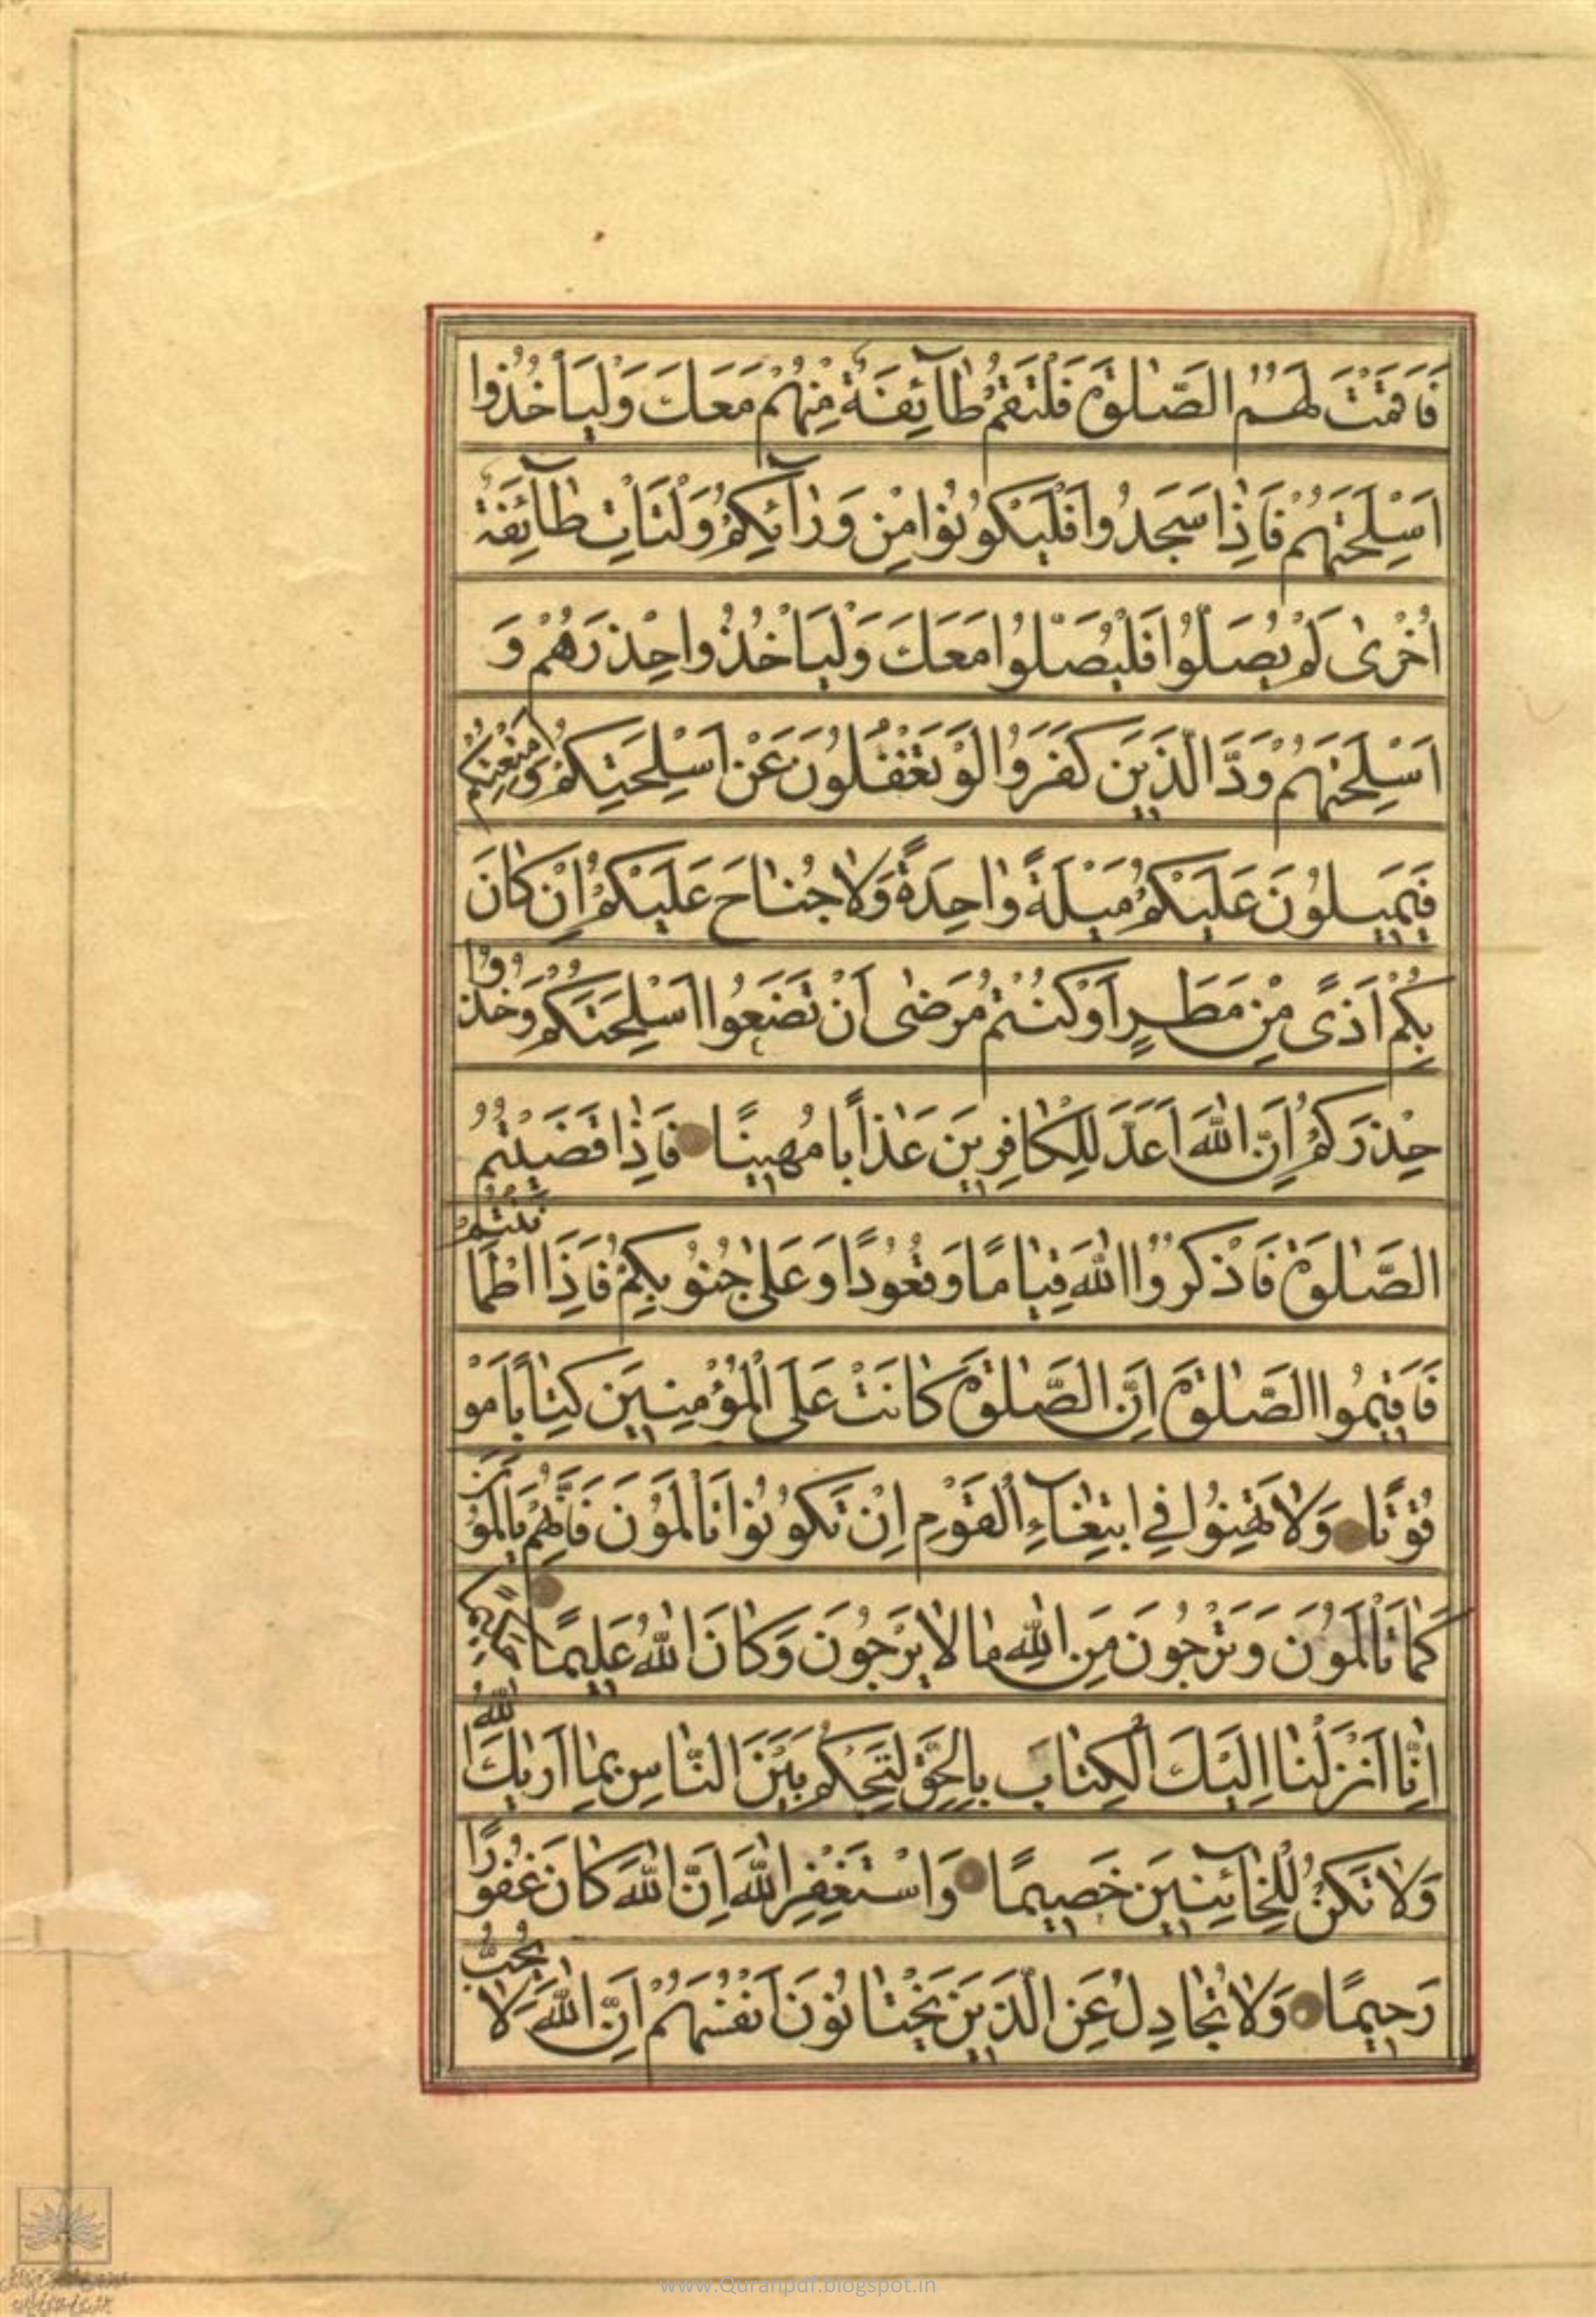 فَاَقَمْتَ لَهُمُ الصَّلٰوةَ فَلْتَقُمْ طَآئِفَةٌ مِنْهُمْ مَعَكَ وَلْيَاْخُذُوا
اَسْلِحَتَهُمْ فَاِذٰا سَجَدُوا فَلْيَكُونُوا مِنْ وَرٰآئِكُمْ وَلْتَاْتِ طٰآئِفَةٌ
اُخْرٰى لَمْ يُصَلُّوا فَلْيُصَلُّوا مَعَكَ وَلْيَاْخُذُوا حِذْرَهُمْ وَ
اَسْلِحَتَهُمْ وَدَّ الَّذَينَ كَفَرَوُا لَوْ تَغْفُلُونَ عَنْ اَسْلِحَتِكُمْ وَاَمْتِعَتِكُمْ
فَيَمِيلُونَ عَلَيْكُمْ مَيْلَةً وٰاحِدَةً وَلٰا جُنٰاحَ عَلَيْكُمْ اِنْ كٰانَ
بِكُمْ اَذًى مِنْ مَطَرٍ اَوْ كُنْتُمْ مَرْضٰى اَنْ تَضَعُوا اَسْلِحَتَكُمْ وَخُذُوا
حِذْرَكُمْ اِنَّ اللّٰهَ اَعَدَّ لِلْكٰافِرِينَ عَذٰاباً مُهِينًا فَاِذٰا قَضَيْتُمُ
الصَّلٰوةَ فَاذْكُرُوا اللّٰهَ قِيٰامًا وَقُعُودًا وَعَلٰى جُنُوبِكُمْ فَاِذَا اطْمَاْنَنْتُمْ
فَاَقِيمُوا الصَّلٰوةَ اِنَّ الصَّلٰوةَ كٰانَتْ عَلَى الْمُؤْمِنِينَ كِتٰاباً مَوْ
قُوتًا وَلٰا تَهِنُوا فِي ابْتِغٰآءِ الْقَوْمِ اِنْ تَكُونُوا تَاْلَمُونَ فَاِنَّهُمْ يَاْلَمُونَ
كَمٰا تَاْلَمُونَ وَتَرْجُونَ مِنَ اللّٰهِ مٰا لٰا يَرْجُونَ وَكٰانَ اللّٰهُ عَلِيمًا حَكِيمًا
اِنّٰا اَنْزَلْنٰا اِلَيْكَ الْكِتٰابَ بِالْحَقِّ لِتَحْكُمَ بَيْنَ النّٰاسِ بِمٰا اَرٰيكَ اللّٰهُ
وَلٰا تَكُنْ لِلْخٰآئِنِينَ خَصِيمًا وَاسْتَغْفِرِ اللّٰهَ اِنَّ اللّٰهَ كٰانَ غَفُورًا
رَحِيمًا وَلٰا تُجٰادِلْ عَنِ الَّذَينَ يَخْتٰانُونَ اَنْفُسَهُمْ اِنَّ اللّٰهَ لٰا يُحِبُّ
www.Quranpdf.blogspot.in